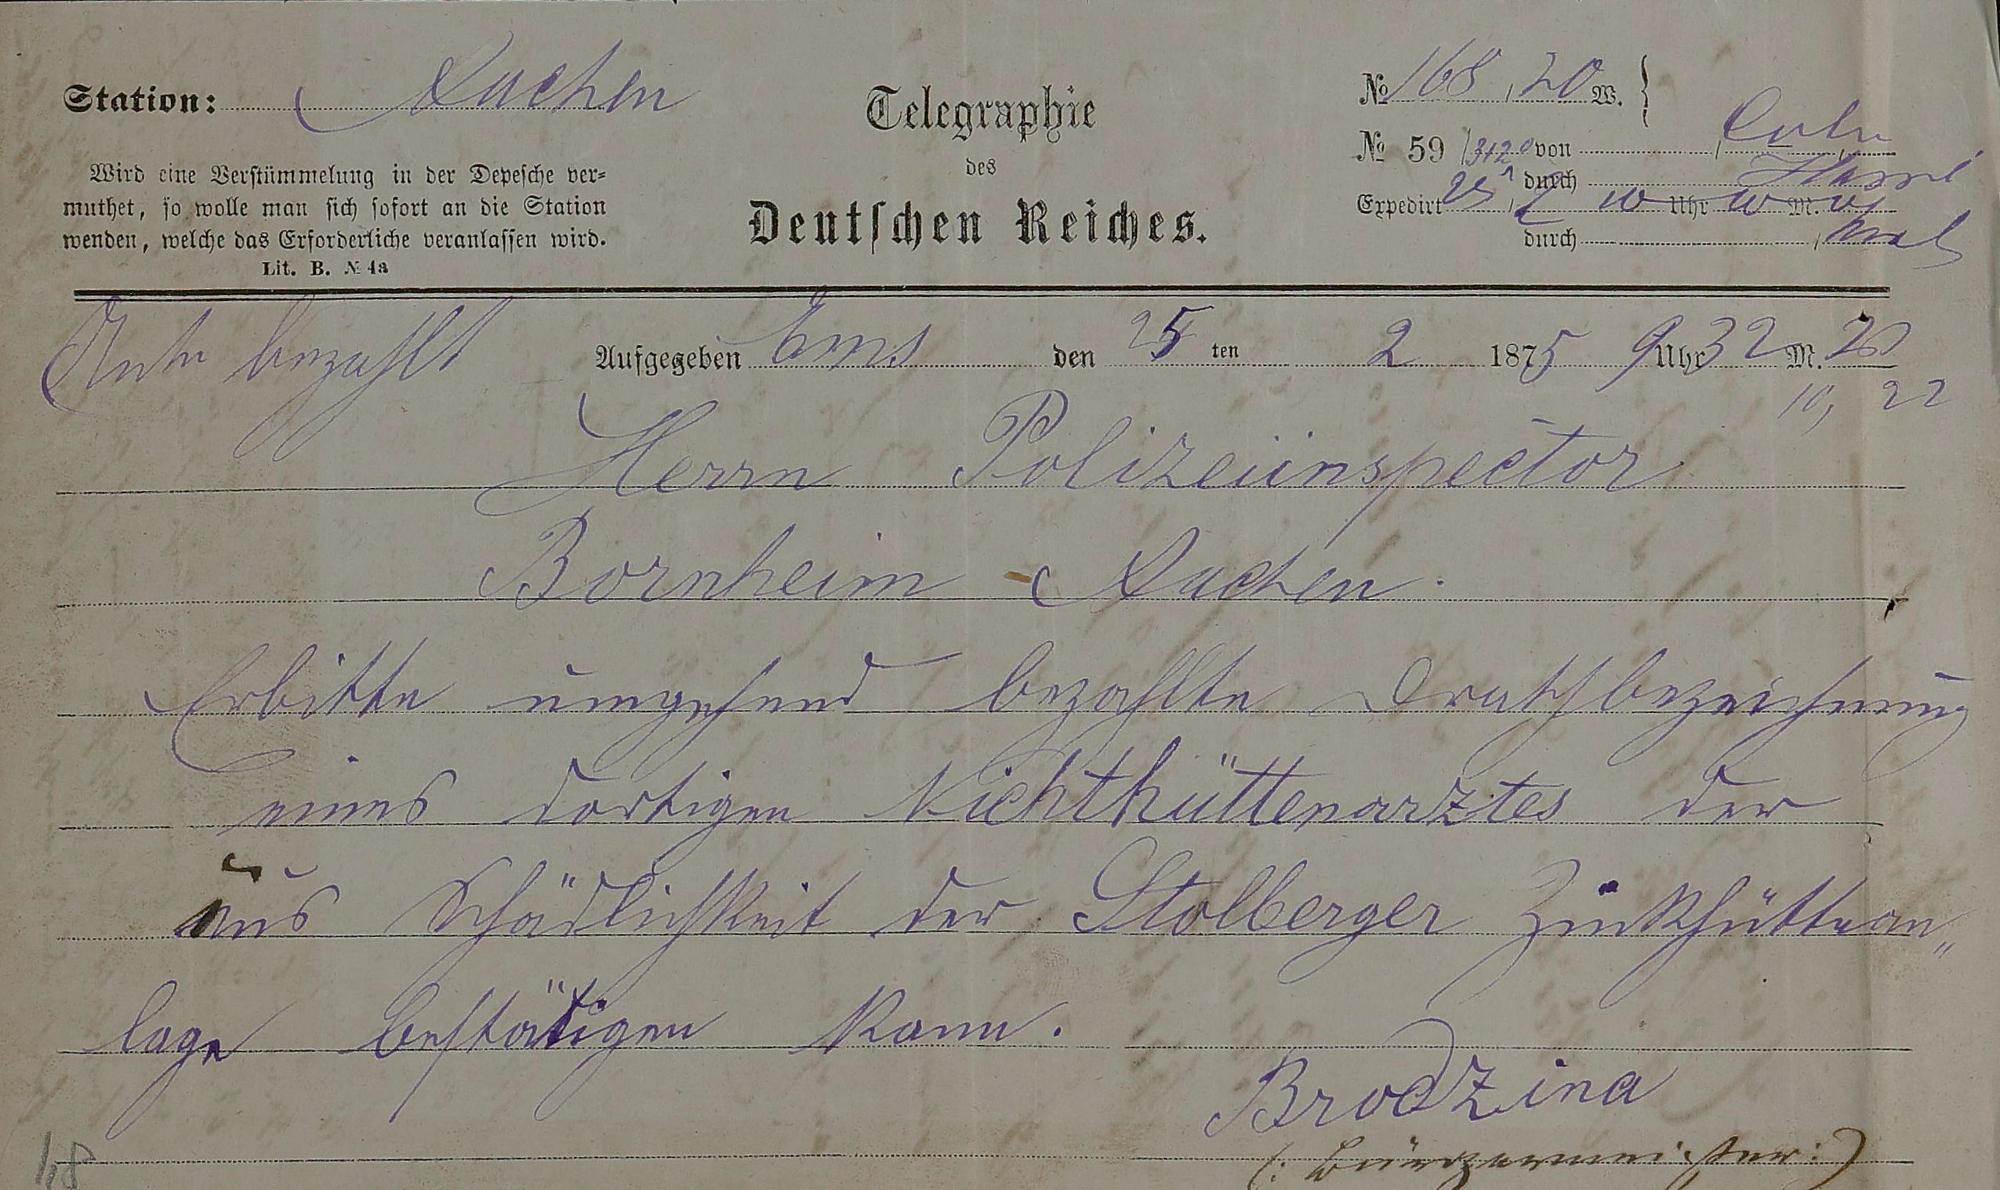 Station: Aachen
Telegraphie
des
Deutschen Reiches.
Wird eine Verstümmelung in der Depesche ver=
muthet, so wolle man sich sofort an die Station
wenden, welche das Erforderliche veranlassen wird.
Lit. B. № 4a
№ 168, 20 W.
№ 59 /3120 von Coeln
durch
Expedirt 25, 2 Uhr M.
durch
Antw bezahlt
Aufgegeben Ems den 25 ten 2 1875 9 Uhr 32 M.
10, 22
Herrn Polizeiinspector
Bornheim Aachen.
Erbitte umgehend bezahlte Drathbezeichnung
eines dortigen Nichthüttenarztes der
aus Schädlichkeit der Stolberger Zinkhüttean„
lage bestätigen kann.
Brodzina
(: Bürgermeister :)
118